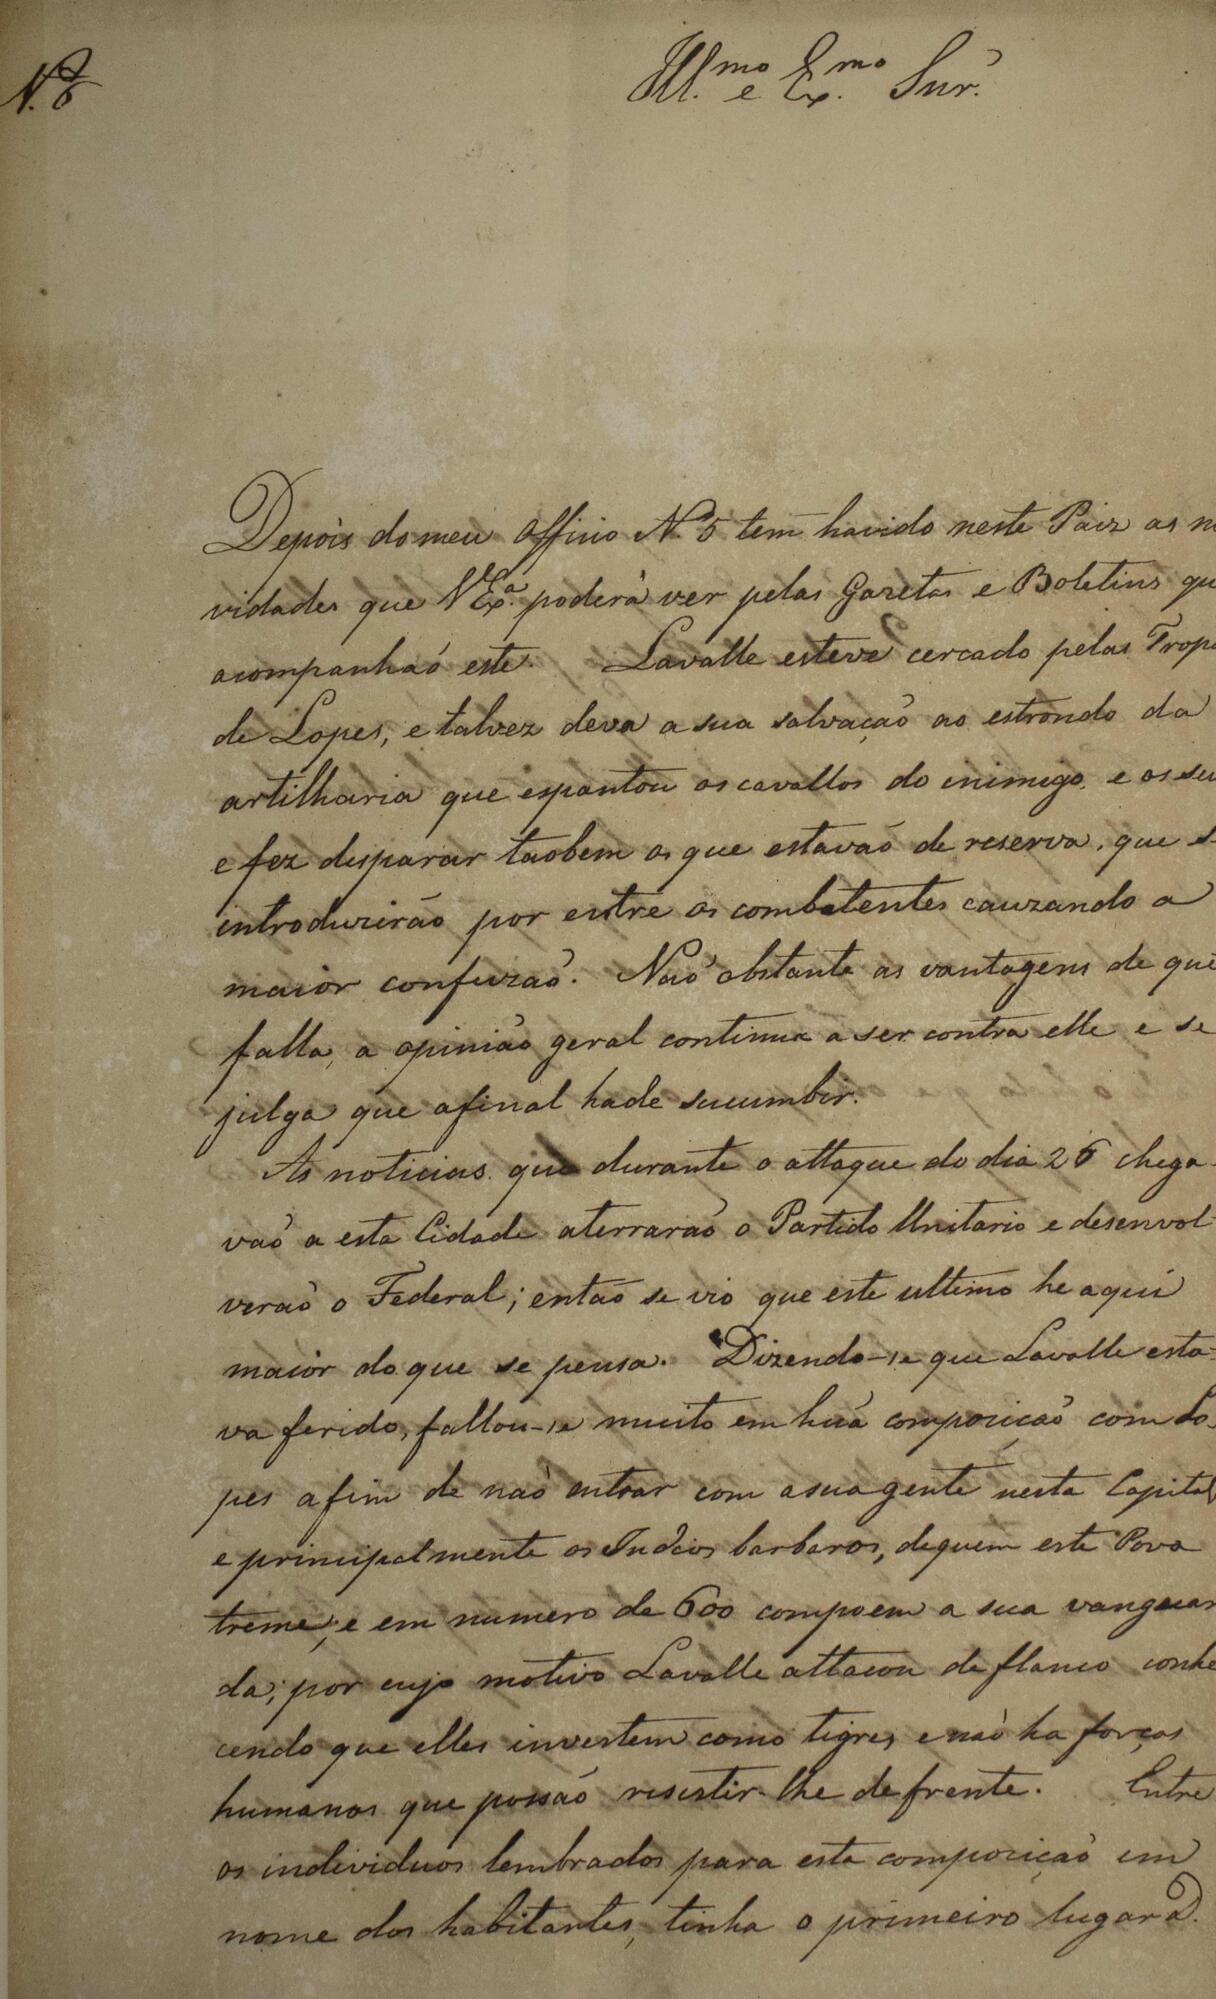 N. 6
Ill.mo e Ex.mo Snr.
Depois do meu Officio N.5 tem havido neste Paiz as no
vidades que V Ex.a poderá ver pelas Gazetas e Boletins que
acompanhaõ este. Lavalle esteve cercado pelas Tropa
de Lopes, e talvez deva a sua salvaçaõ ao estrondo da
artilharia que espantou os cavallos do inimigo, e os seu
e fez disparar taobem os que estavaõ de reserva, que s
introduziraõ por entre os combatentes cauzando a
maior confuzaõ. Naõ obstante as vantagens de que
falla, a opiniaõ geral continua a ser contra elle e se
julga que afinal hade sucumbir.
As noticias que durante o attaque do dia 26 chega-
vaõ a esta Cidade aterraraõ o Partido Unitario e desenvol-
veraõ o Federal; entaõ se vio que este ultimo he aqui
maior do que se pensa. Dizendo-se que Lavalle esta-
va ferido, fallou-se muito em huã compoziçaõ com Lo-
pes afim de naõ entrar com a sua gente nesta Capital
e principalmente os Indios barbaros, de quem este Povo
treme, e em numero de 600 compoem a sua vanguar
da; por cujo motivo Lavalle attacou de flanco conhe
cendo que elles investem como tigres, e naõ ha forças
humanas que possaõ resistir-lhe de frente. Entre
os individuos lembrados para esta compoziçaõ em
nome dos habitantes, tinha o primeiro lugar D.